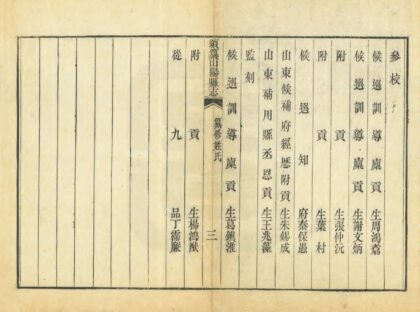 參校
候選訓導廩貢生周鴻
候選訓導廩貢生謝文炳
附貢生張仲沅
附貢生葉村
候選知府秦保愚
山東候補府經歷附貢生朱錫成
山東補用縣丞恩貢生王兆藻
監刻
候選訓導廩貢生葛鎮淮
續纂山陽縣志
纂修姓氏
三
附貢生楊鴻猷
從九品丁霱廉